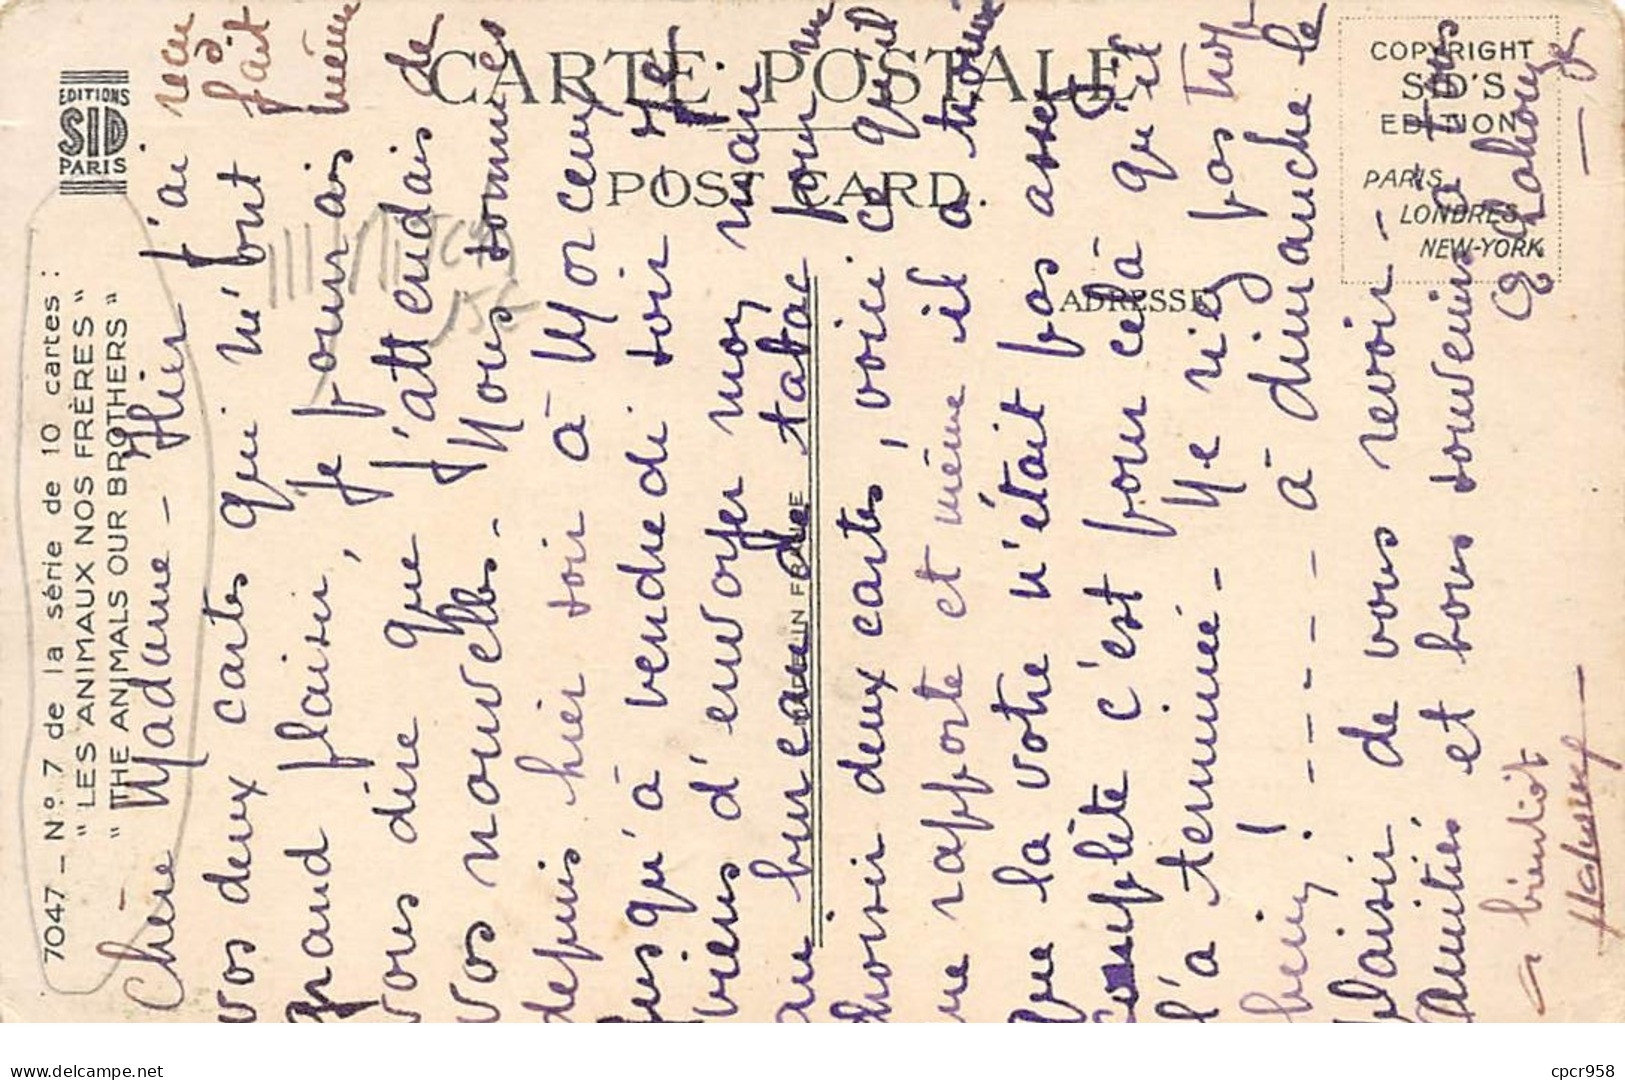 EDITIONS
SID
PARIS
7047 – Nº 7 de la série de 10 cartes :
" LES ANIMAUX NOS FRÈRES "
" THE ANIMALS OUR BROTHERS "
CARTE POSTALE
POST CARD.
ADRESSE
COPYRIGHT
SID'S
EDITION
PARIS
LONDRES
NEW-YORK
IN FRANCE
15€
Chère Madame – Hier j'ai reçu
vos deux cartes qui m'ont fait
grand plaisir, je pourrais même
vous dire que j'attendais de
vos nouvelles. Nous sommes
depuis hier soir à Morcenx
jusqu'à vendredi soir et
viens d'envoyer mon mari
au bureau de tabac pour me
choisir deux cartes, voici ce qu'il
me rapporte et même il a trouvé
que la votre n'était pas assez
complète c'est pour celà qu'il
l'a terminée – Ne riez pas trop
hein! – – – – à dimanche le
plaisir de vous revoir –
Amitiés et bons souvenirs à tous
à bientôt
cpcr958